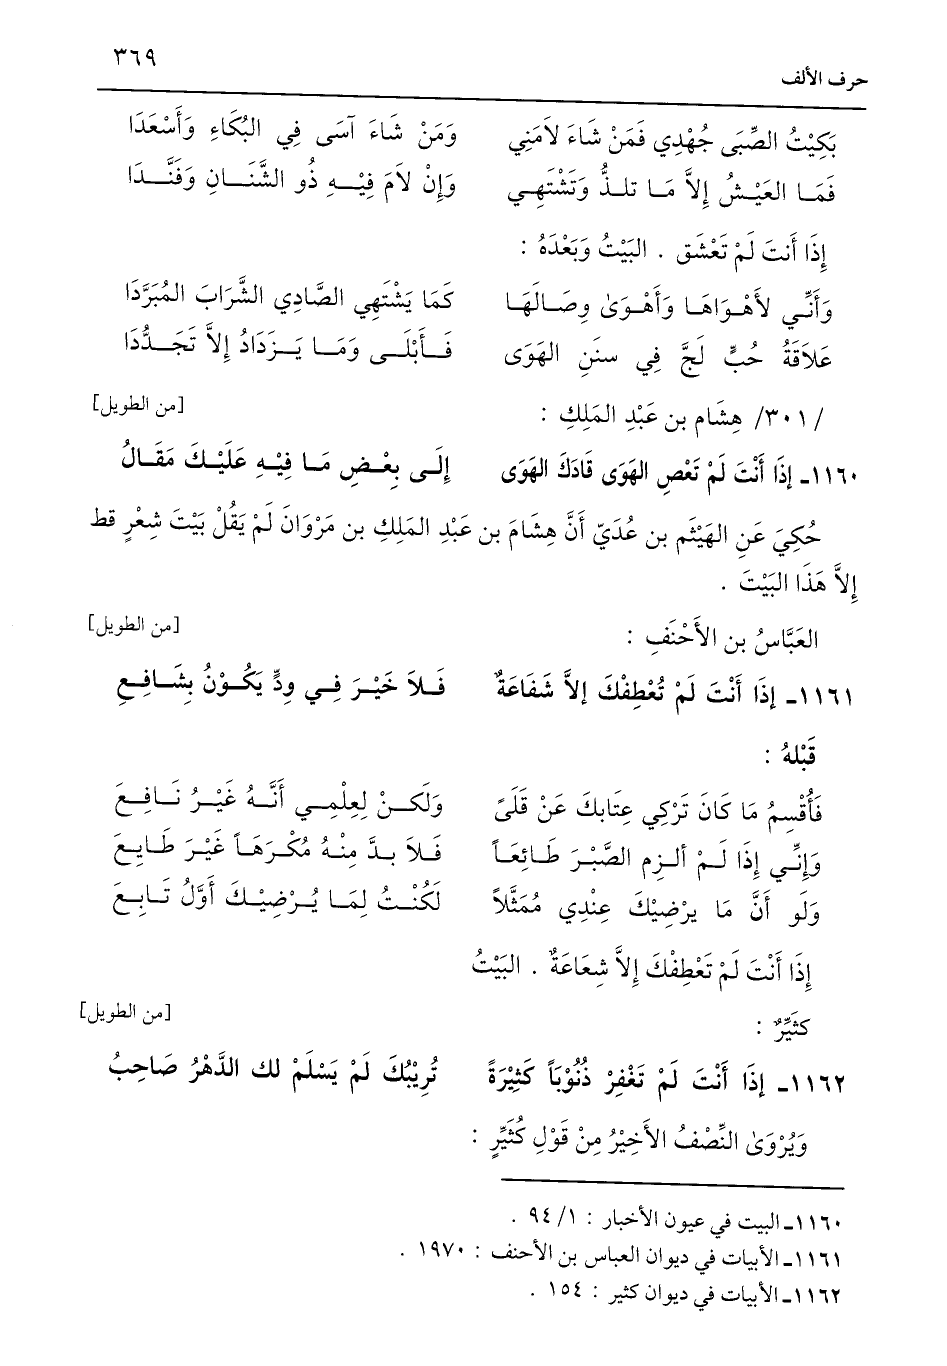 حرف الألف ٣٦٩
بَكِيْتُ الصِّبَى جُهْدِي فَمَنْ شَاءَ لاَمَنِي وَمَنْ شَاءَ آسَى فِي البُكَاءِ وَأَسْعَدَا
فَمَا العَيْشُ إِلاَّ مَا تلذُّ وَتَشْتَهِي وَإِنْ لاَمَ فِيْهِ ذُو الشَّنَانِ وَفَنَّدَا
إِذَا أَنتَ لَمْ تَعْشَق . البَيْتُ وَبَعْدَهُ :
وَأنِّي لأَهْوَاهَا وَأَهْوَىٰ وِصَالَهَا كَمَا يَشْتَهِي الصَّادِي الشَّرَابَ المُبَرَّدَا
عَلاَقَةُ حُبٍّ لَجَّ فِي سنَنِ الهَوَى فَأَبْلَى وَمَا يَزدَادُ إِلاَّ تَجَدُّدَا
/٣٠١/ هِشَام بن عَبْدِ المَلِكِ : [من الطويل]
١١٦٠ـ إِذَا أَنْتَ لَمْ تَعْصِ الهَوَى قَادَكَ الهَوَى إِلَى بِعْضِ مَا فِيْهِ عَلَيْكَ مَقَالُ
حُكِيَ عَنِ الهَيْثَمِ بن عُدَيّ أَنَّ هِشَامَ بن عَبْدِ المَلِكِ بن مَرْوَانَ لَمْ يَقُلْ بَيْتَ شِعْرٍ قط
إِلاَّ هَذَا البَيْتَ .
العَبَّاسُ بن الأَحْنَفِ : [من الطويل]
١١٦١ـ إِذَا أَنْتَ لَمْ تُعْطِفْكَ إلاَّ شَفَاعَةٌ فَلاَ خَيْرَ فِي ودٍّ يَكُوْنُ بِشَافِعِ
قَبْلهُ :
فَأُقْسِمُ مَا كَانَ تَرْكِي عِتَابكَ عَنْ قَلَىً وَلَكنْ لِعِلْمِي أَنَّهُ غَيْرُ نَافِعَ
وَإنِّي إِذَا لَمْ ألزم الصَّبْرَ طَائِعَاً فَلاَ بدَّ مِنْهُ مُكْرَهَاً غَيْرَ طَايِعَ
وَلَو أَنَّ مَا يرْضِيْكَ عِنْدِي مُمَثَّلاً لَكُنْتُ لِمَا يُرْضِيْكَ أوَّلُ تَابِعَ
إِذَا أَنْتَ لَمْ تَعْطِفْكَ إِلاَّ شِعَاعَةٌ . البَيْتُ
كثَيِّرٌ : [من الطويل]
١١٦٢ـ إِذَا أَنْتَ لَمْ تَغْفِرْ ذُنُوْبَاً كَثِيْرَةً تُرِيْبُكَ لَمْ يَسْلَمْ لك الدَّهْرُ صَاحِبُ
وَيُرْوَىٰ النِّصْفُ الأَخِيْرُ مِنْ قَوْلِ كُثَيِّرٍ :
١١٦٠ـ البيت في عيون الأخبار : ١/ ٩٤ .
١١٦١ـ الأبيات في ديوان العباس بن الأحنف : ١٩٧٠ .
١١٦٢ـ الأبيات في ديوان كثير : ١٥٤ .